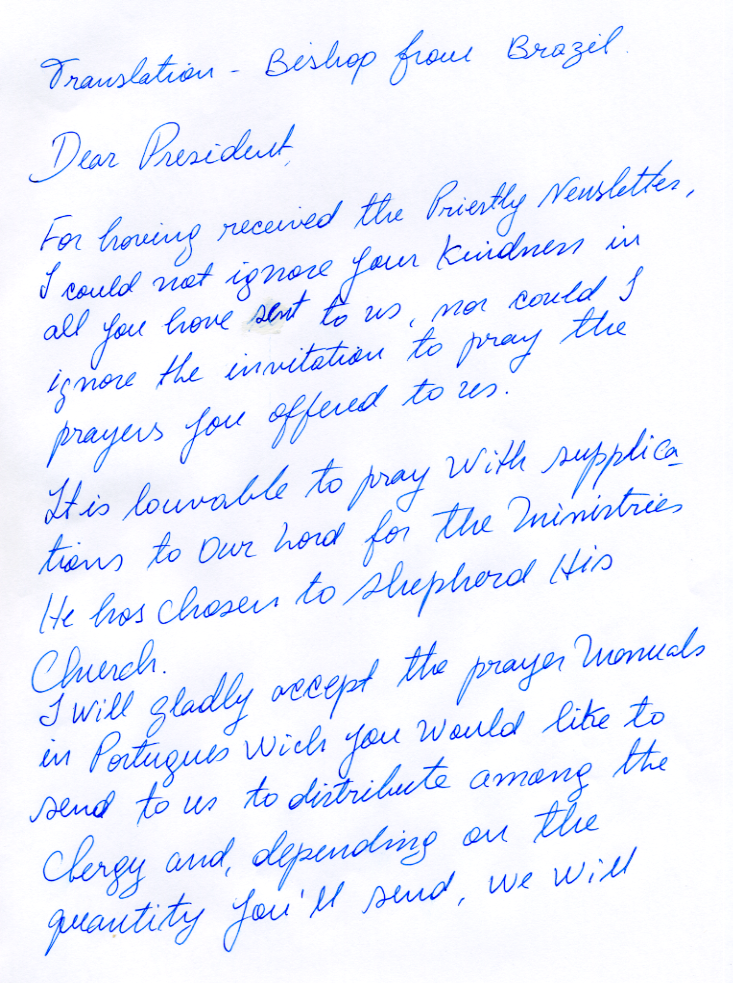 Translation - Bishop from Brazil.
Dear President,
For having received the Priestly Newsletter,
I could not ignore your kindness in
all you have sent to us, nor could I
ignore the invitation to pray the
prayers you offered to us.
It is louvable to pray with supplica_
tions to Our Lord for the Ministries
He has chosen to shepherd His
Church.
I will gladly accept the prayer Manuals
in Portugues wich you would like to
send to us to distribute among the
Clergy and, depending on the
quantity you'll send, we will